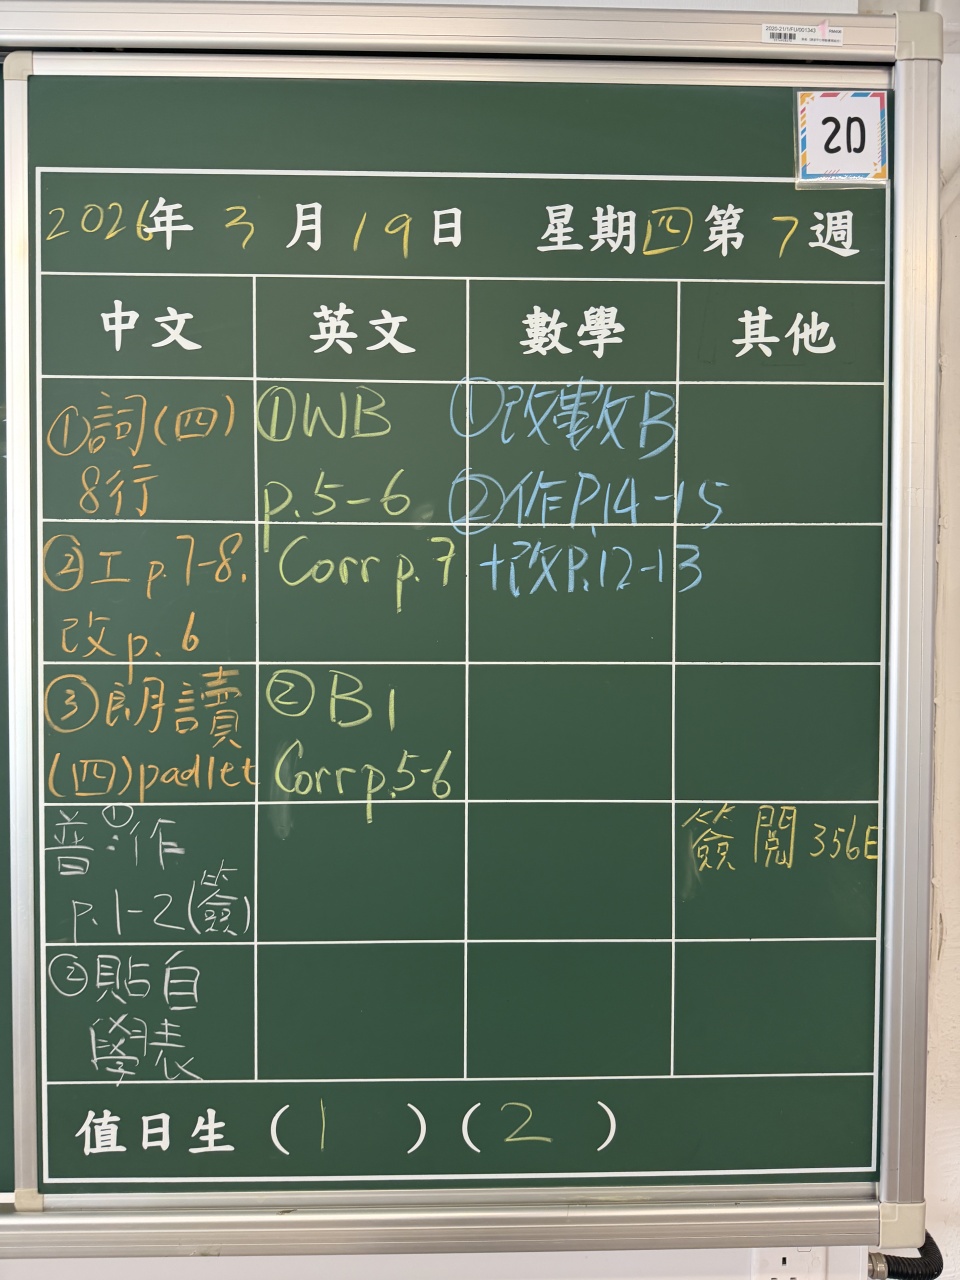 2020-21/1/FU/001343
2D
2026年 3 月 19 日 星期四 第 7 週
中文 英文 數學 其他
①詞(四)
8行
②工 p.7-8.
改 p. 6
③朗讀
(四)padlet
普:①作
p.1-2(簽)
②貼自
學表
①WB
p.5-6
Corr p.7
②B1
Corr p.5-6
①改數B
②作P.14-15
+改P.12-13
簽閱356E
值日生 ( 1 ) ( 2 )